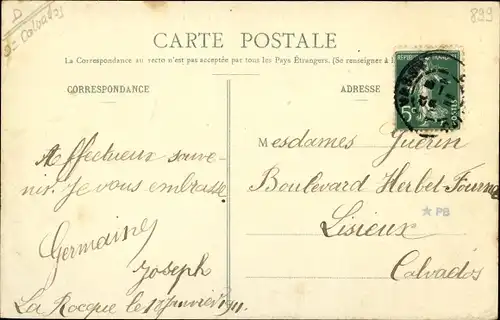 D
Calvados
899
CARTE POSTALE
La Correspondance au recto n'est pas acceptée par tous les Pays Étrangers. (Se renseigner à l
CORRESPONDANCE
ADRESSE
REPUBLIQUE FRANÇAISE
5c
POSTES
Affectueux souve-
nir. Je vous embrasse
Germaine
Joseph
La Rocque le 1 Janvier 1911.
Mesdames Guérin
Boulevard Herbet-Fournet
★ PB
Lisieux
Calvados